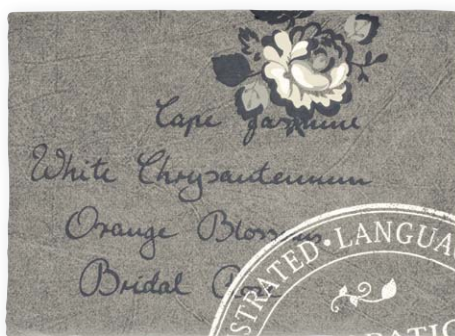 Cape Jasmine
White Chrysantemum
Orange Blossoms
Bridal Rose
STRATED · LANGUA